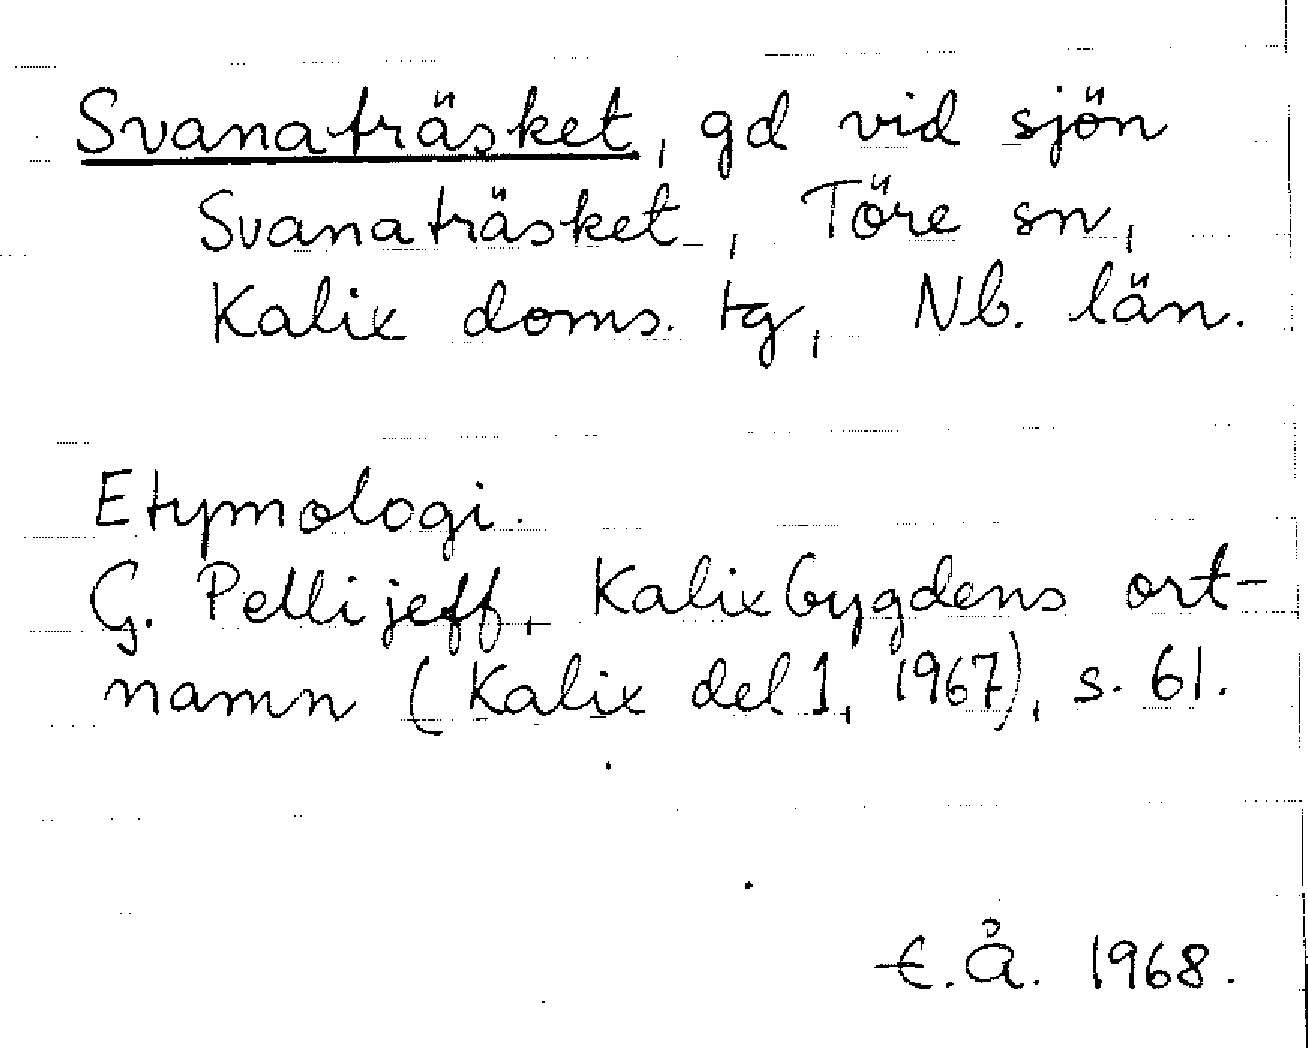 Svanaträsket, gd vid sjön
Svanaträsket, Töre sn,
Kalix doms. tg, Nb. län.
Etymologi.
G. Pellijeff, Kalixbygdens ort-
namn (Kalix del 1, 1967), s. 61.
E. Å. 1968.